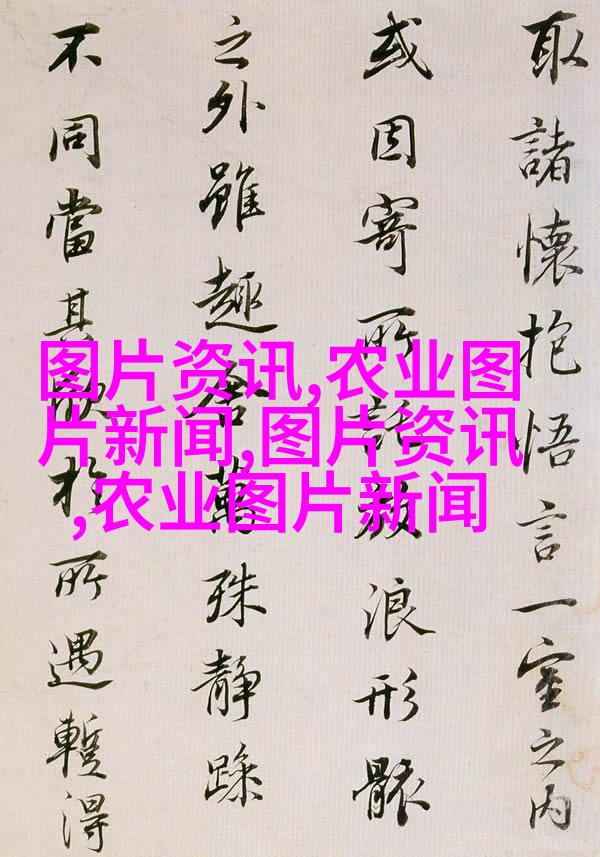 取諸懷抱悟言一室之内
或因寄所託放浪形骸
之外雖趣舍萬殊静躁
不同當其欣於所遇蹔得
图片资讯,农业图
片新闻,图片资讯
,农业图片新闻